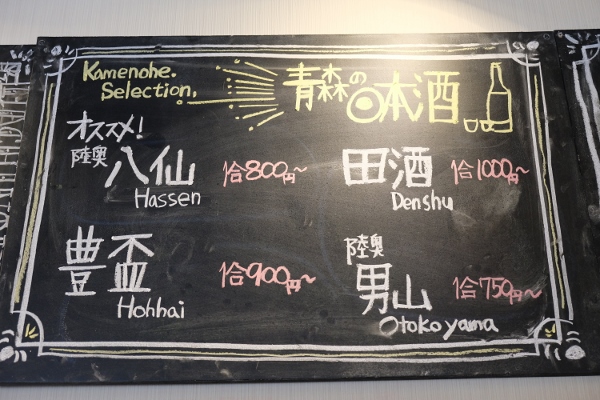 Kamenohe.
Selection,
青森の日本酒
オススメ!
陸奥八仙 1合800円〜
Hassen
田酒 1合1000円〜
Denshu
豊盃 1合900円〜
Hohhai
陸奥
男山 1合750円〜
Otokoyama